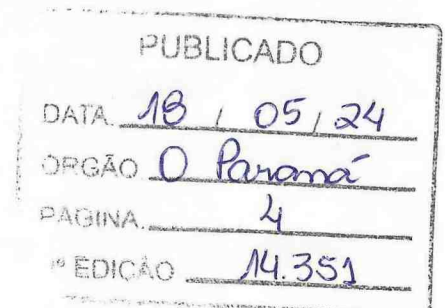 PUBLICADO
DATA 18 / 05 / 24
ORGÃO O Paraná
PAGINA 4
Nº EDIÇÃO 14.351